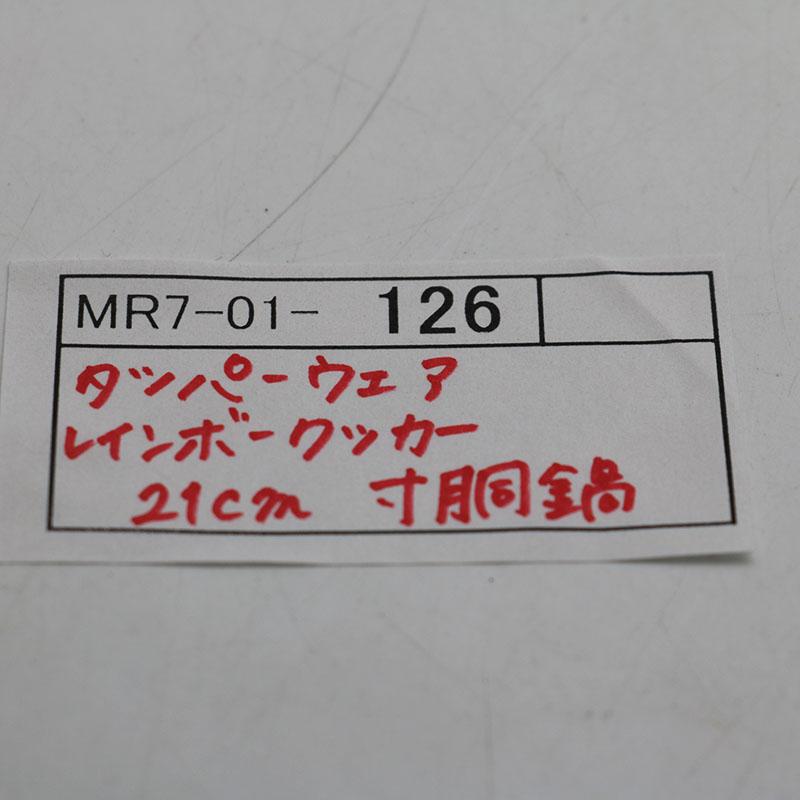 MR7-01- 126
タッパーウェア
レインボークッカー
21cm 寸胴鍋